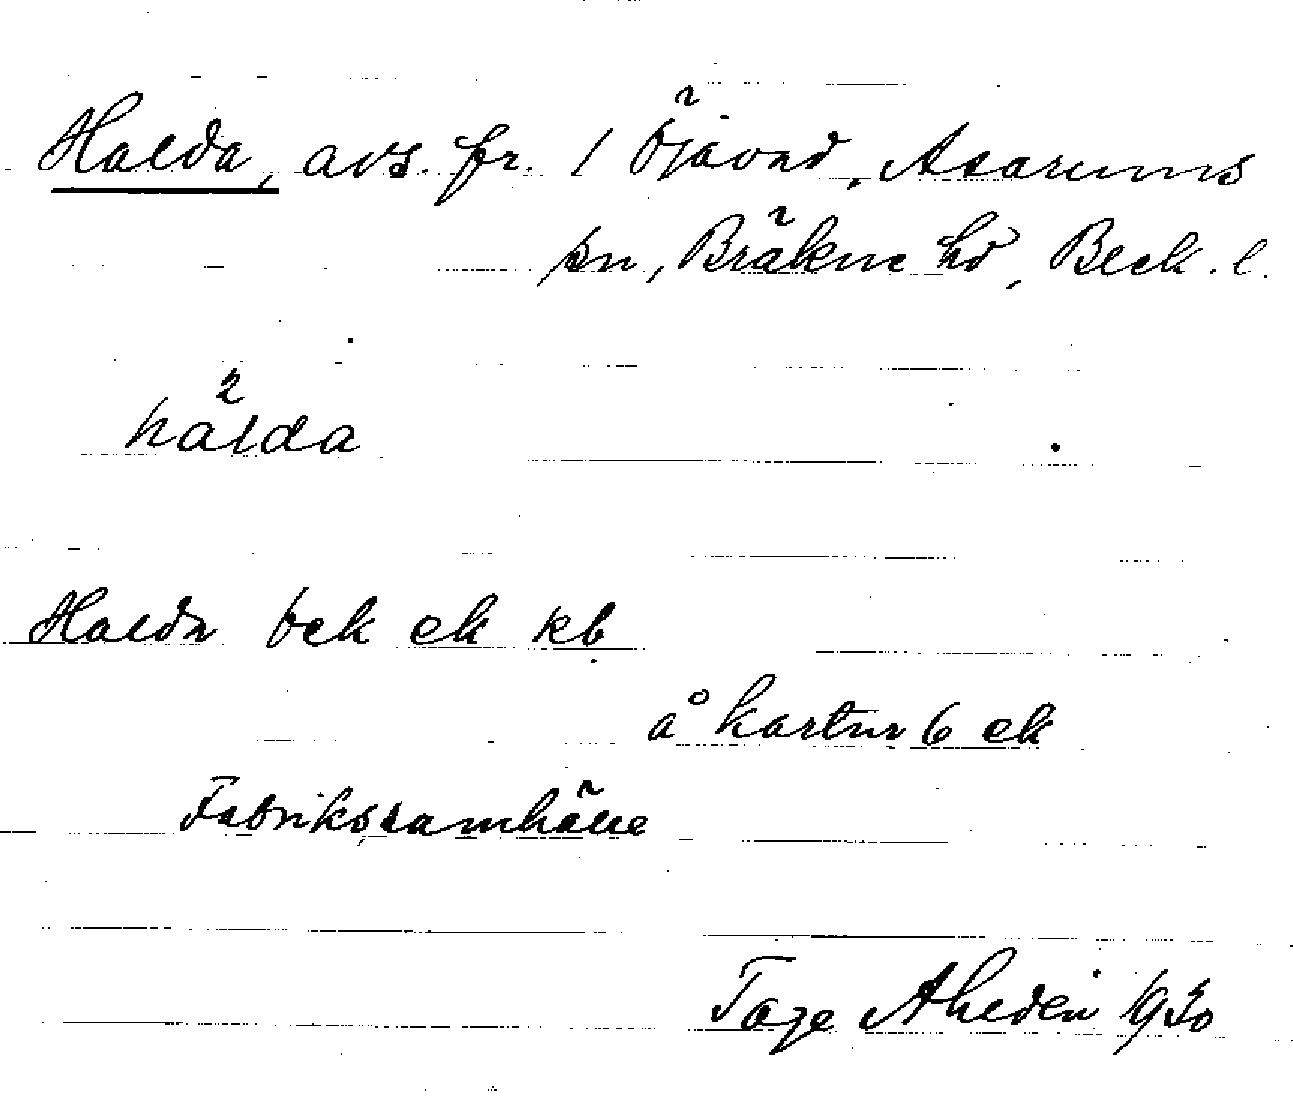 Halda, avs. fr. 1 Öjavad, Asarums
sn, Bräkne hd, Blek. l.
hálda
Halda bek ek kb
å kartur 6 ek
Fabrikssamhälle
Tage Ahldén 1930